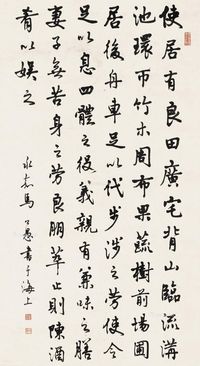 使居有良田廣宅背山臨流溝
池環帀竹木周布果蔬樹前場圃
居後舟車足以代步涉之勞使令
足以息四體之役養親有兼味之膳
妻子無苦身之勞良朋萃止則陳酒
肴以娛之
永嘉馬公愚書于海上